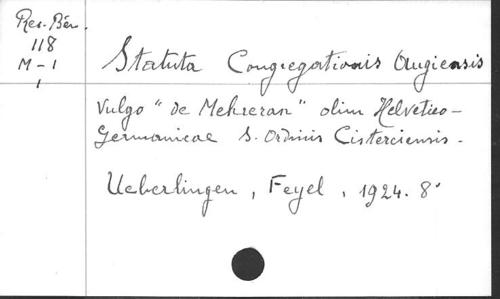 Res. Bér.
118
M - 1
1
Statuta Congregationis Augiensis
vulgo "de Mehreran" olim Helvetico-
Germanicae S. Ordinis Cisterciensis.
Ueberlingen, Feyel, 1924. 8°